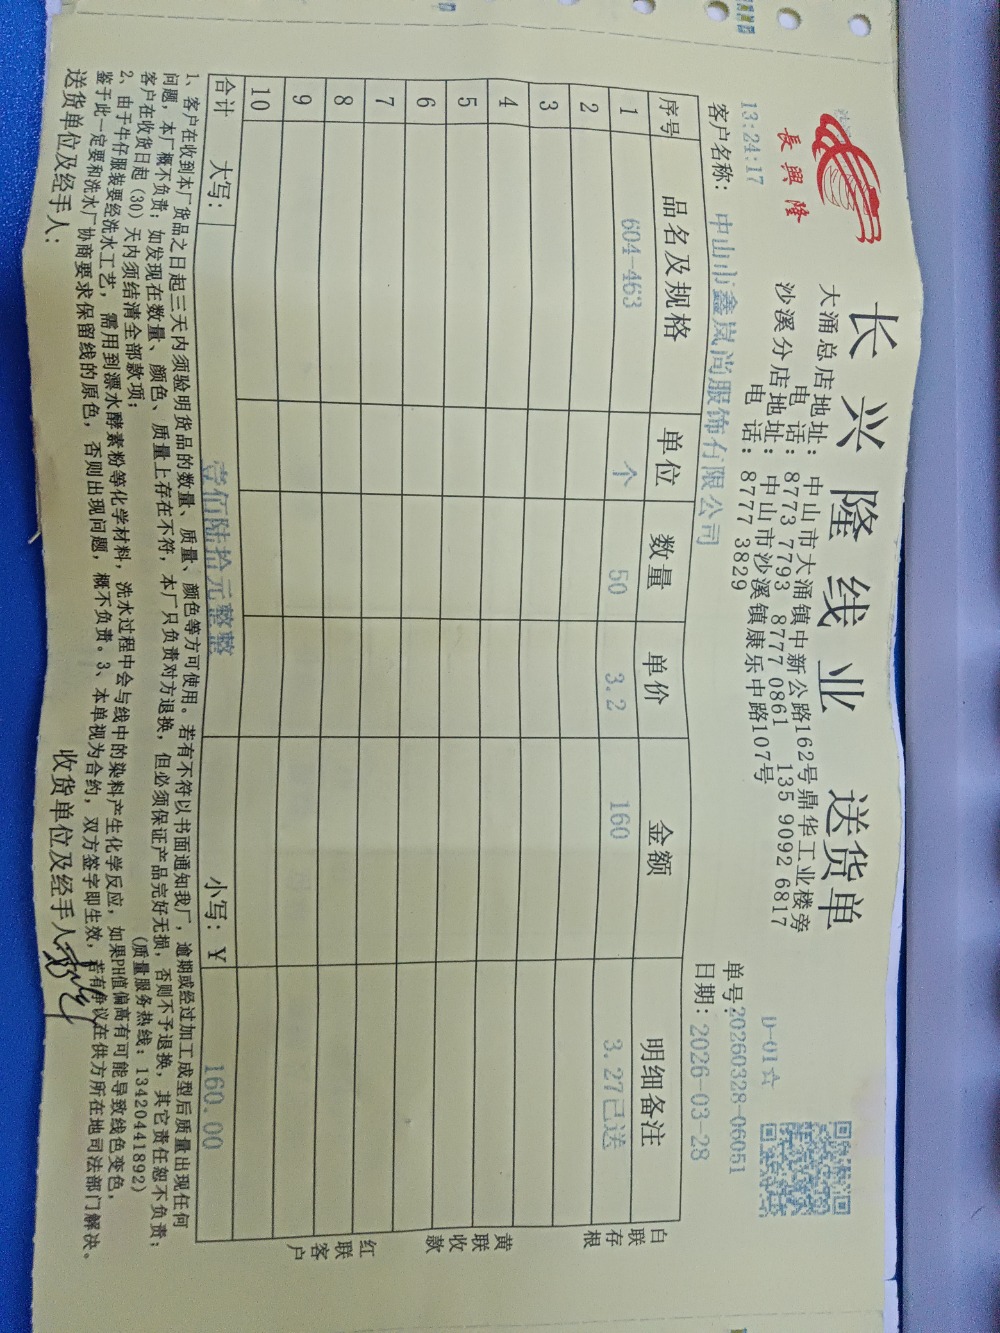 長興隆
长兴隆线业 送货单
D-01☆
大涌总店地址：中山市大涌镇中新公路162号鼎华工业楼旁
电 话：8773 7793 8777 0861 135 9092 6817
沙溪分店地址：中山市沙溪镇康乐中路107号
电 话：8777 3829
13:24:17
单号：20260328-06051
客户名称：中山市鑫岚尚服饰有限公司 日期：2026-03-28
序号 品名及规格 单位 数量 单价 金额 明细备注
1 604-463 个 50 3.2 160 3.27已送
2
3
4
5
6
7
8
9
10
合计 大写：壹佰陆拾元整整 小写：¥ 160.00
白联存根
黄联收款
红联客户
1、客户在收到本厂货品之日起三天内须验明货品的数量、质量、颜色等方可使用。若有不符以书面通知我厂，逾期或经过加工成型后质量出现任何
问题，本厂概不负责；如发现在数量、颜色、质量上存在不符，本厂只负责对方退换，但必须保证产品完好无损，否则不予退换，其它责任恕不负责；
客户在收货日起（30）天内须结清全部款项； (质量服务热线：13420441892)
2、由于牛仔服装要经洗水工艺，需用到漂水酵素粉等化学材料，洗水过程中会与线中的染料产生化学反应，如果PH值偏高有可能导致线色变色，
鉴于此一定要和洗水厂协商要求保留线的原色，否则出现问题，概不负责。3、本单视为合约，双方签字即生效，若有争议在供方所在地司法部门解决。
送货单位及经手人： 收货单位及经手人